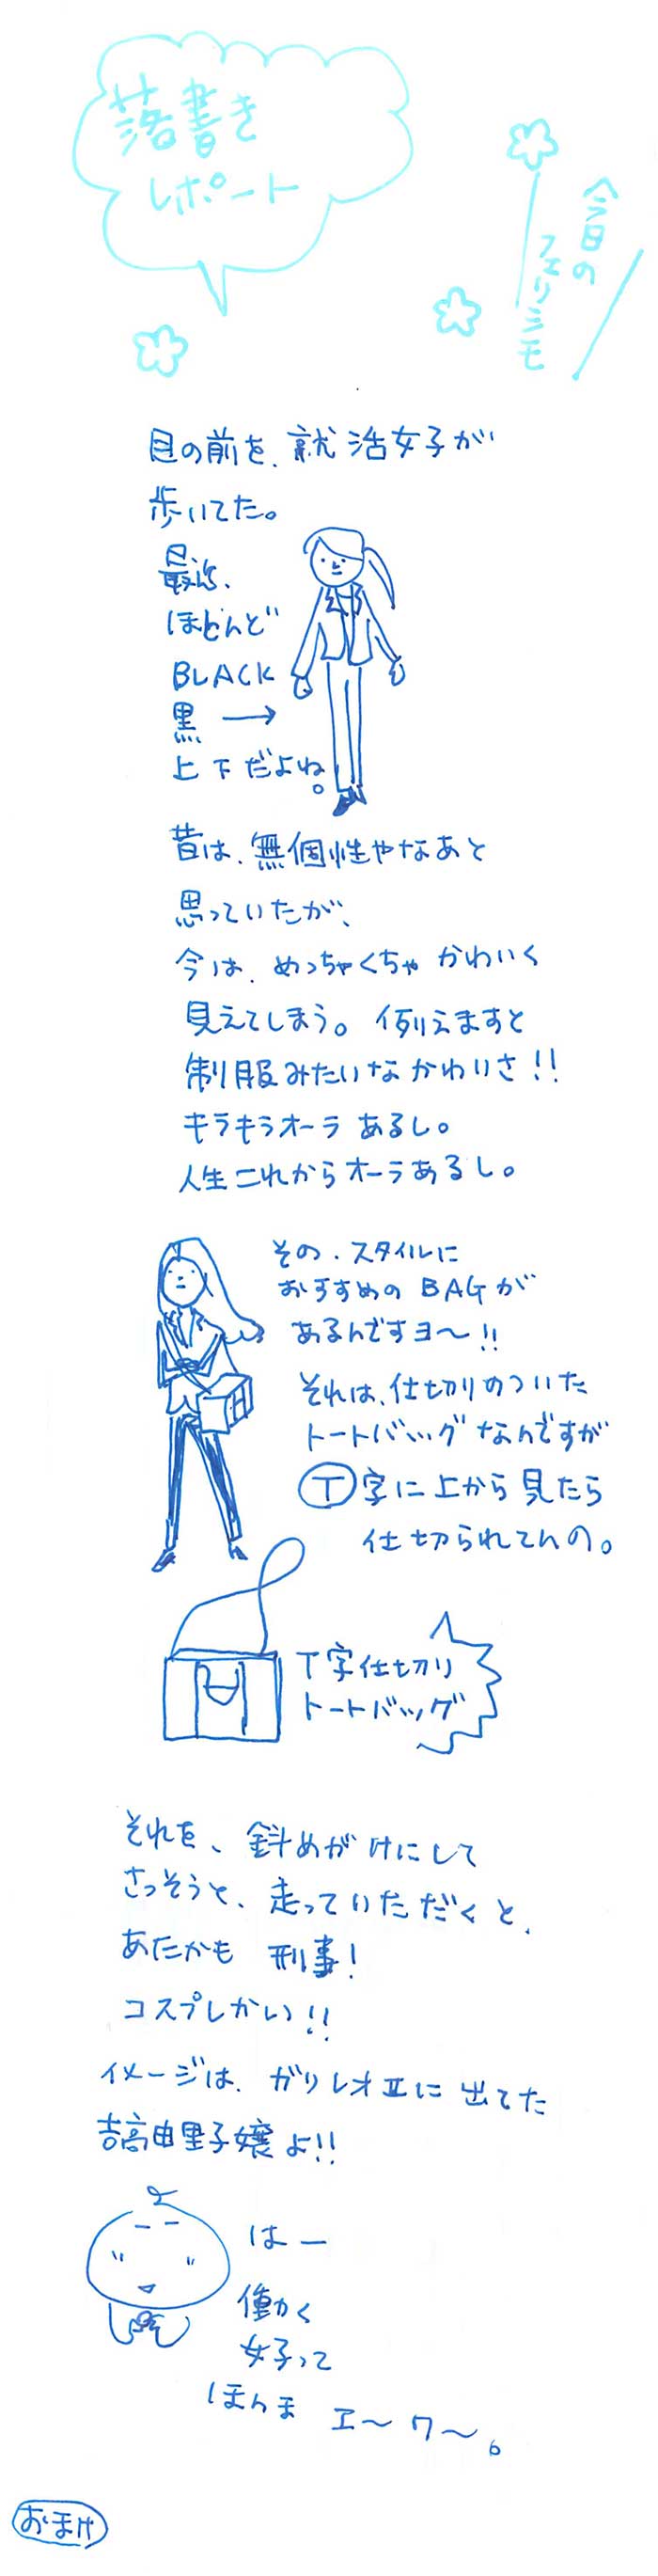 落書き
レポート
今日の
フェリシモ
目の前を、就活女子が
歩いてた。
最近、
ほとんど
BLACK
黒 →
上下だよね。
昔は、無個性やなあと
思っていたが、
今は、めっちゃくちゃかわいく
見えてしまう。例えますと
制服みたいなかわいさ!!
キラキラオーラあるし。
人生これからオーラあるし。
その、スタイルに
おすすめのBAGが
あるんですヨ〜!!
それは、仕切りのついた
トートバッグなんですが
T字に上から見たら
仕切られてんの。
T字仕切り
トートバッグ
それを、斜めがけにして
さっそうと、走っていただくと、
あたかも 刑事!
コスプレかい!!
イメージは、ガリレオⅡに出てた
吉高由里子嬢よ!!
はー
働く
女子って
ほんま エ〜ワ〜。
おまけ